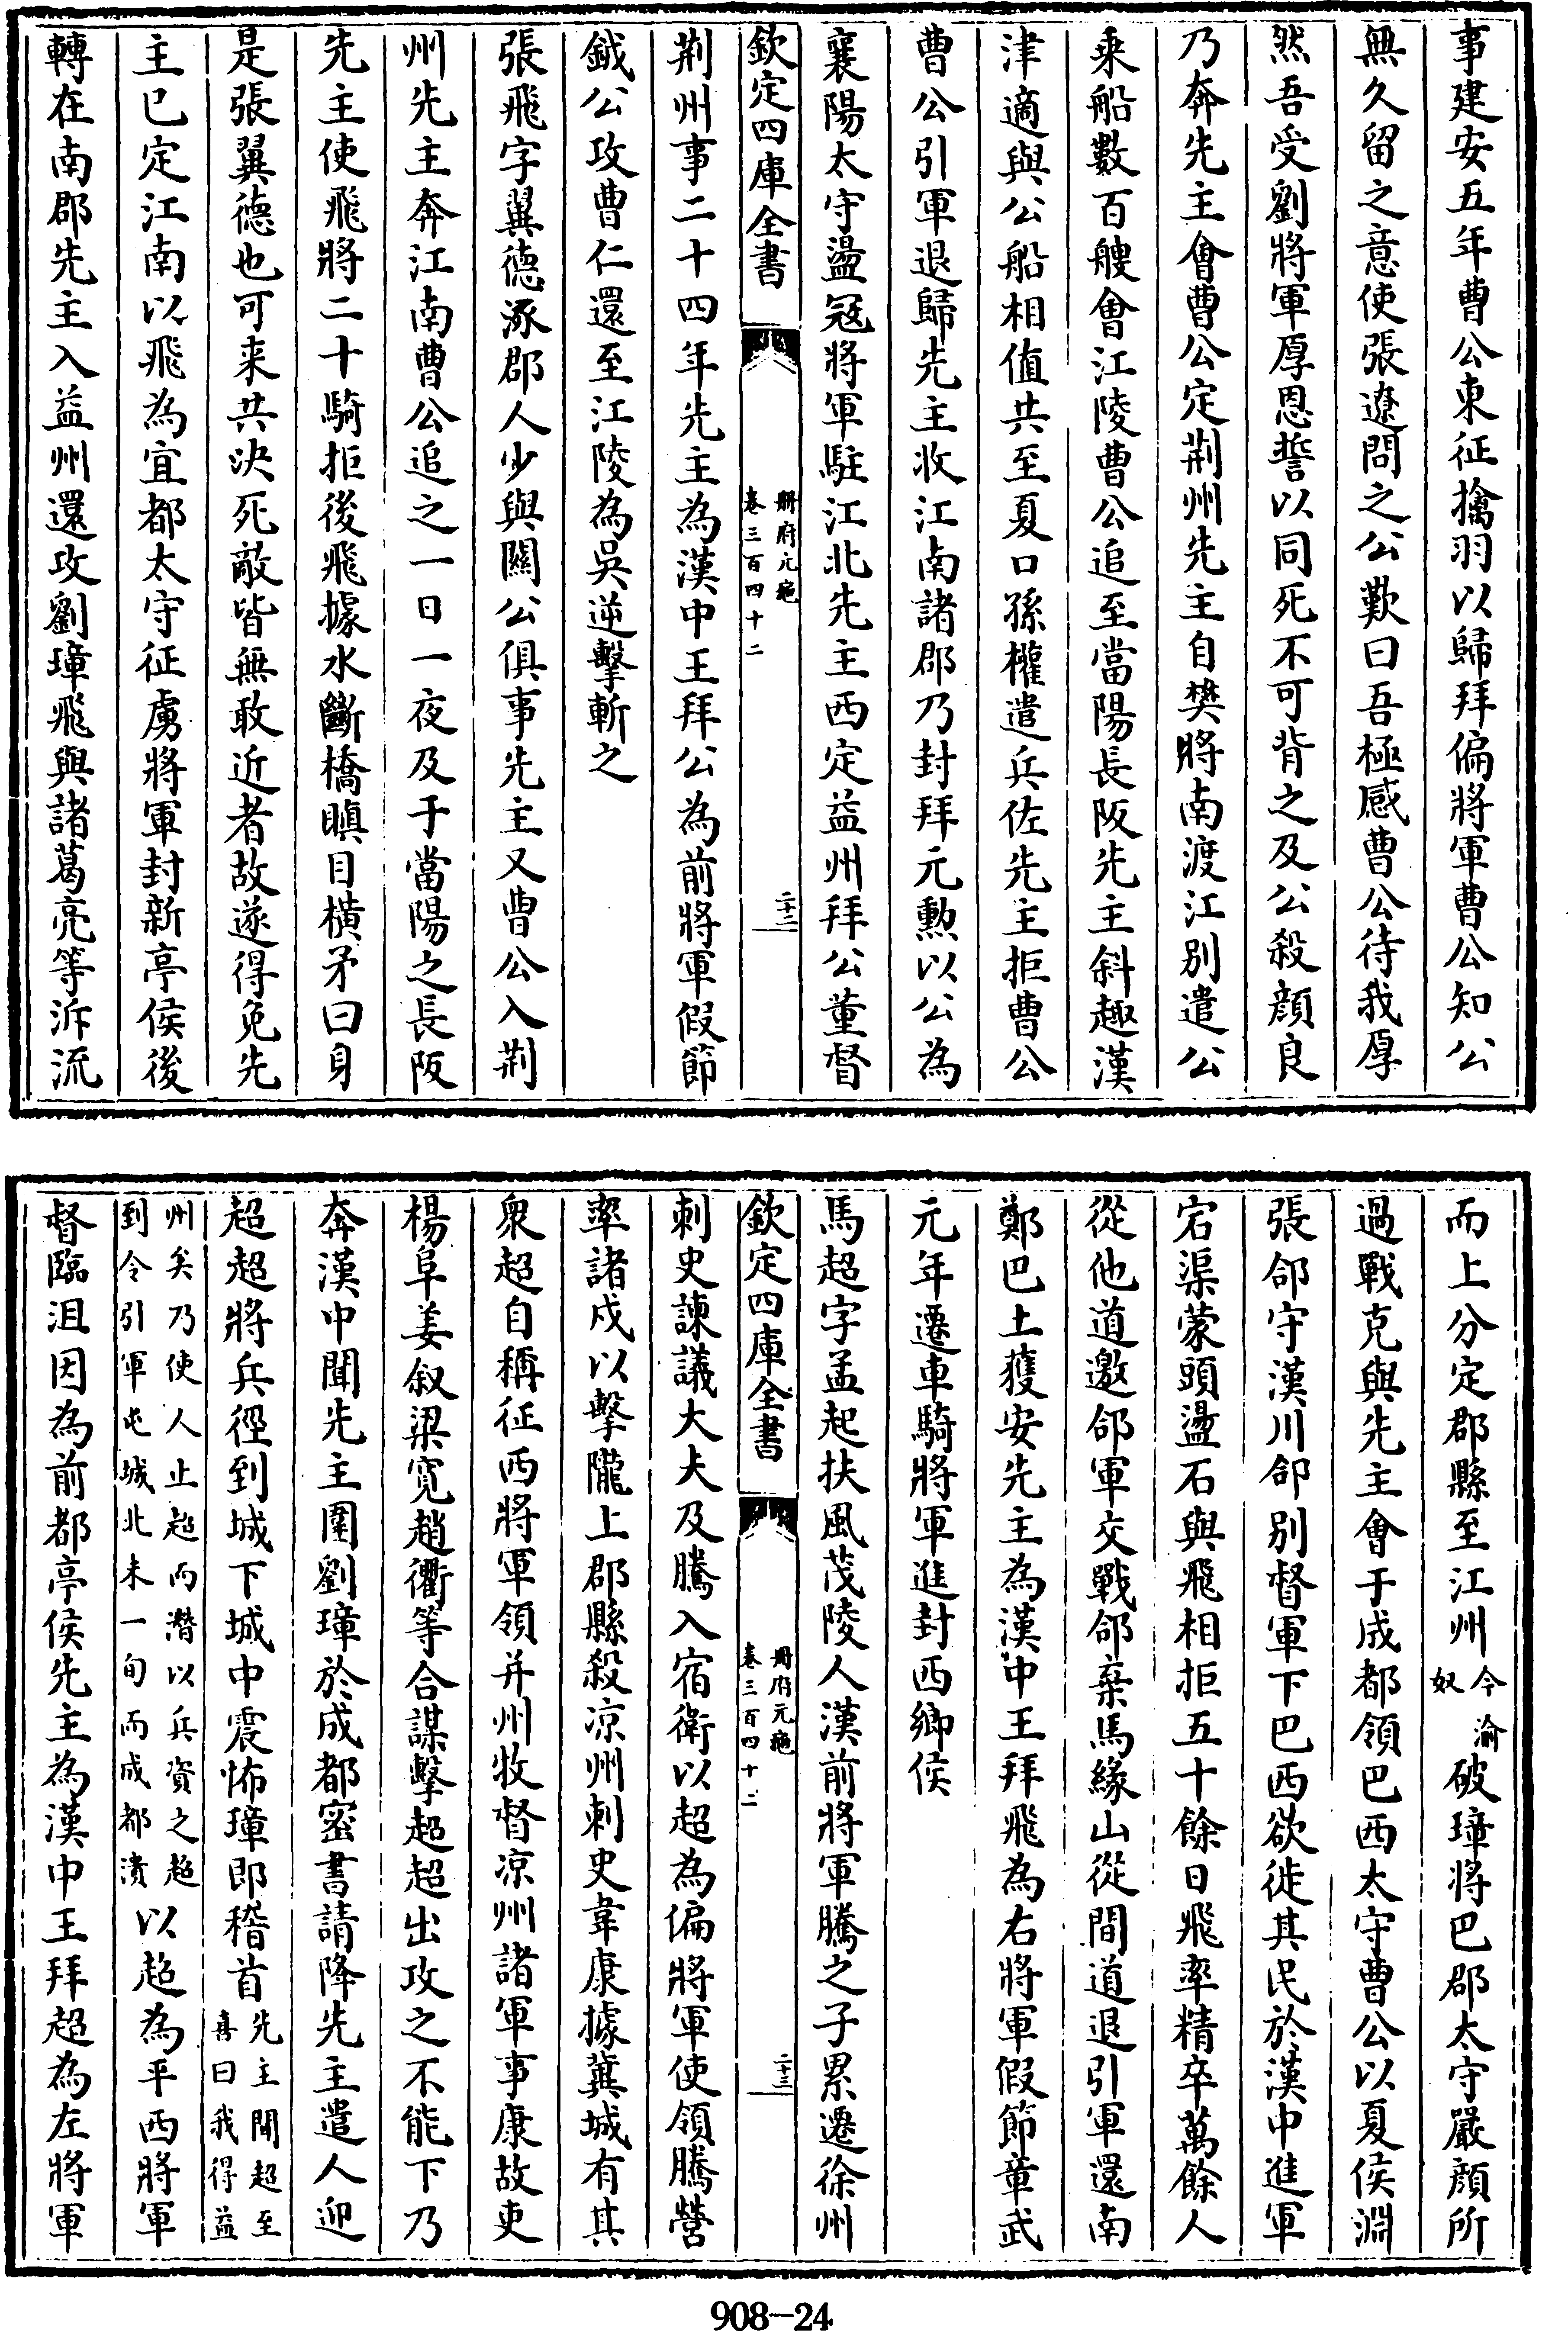 事建安五年曹公東征擒羽以歸拜偏將軍曹公知公
無久留之意使張遼問之公歎曰吾極感曹公待我厚
然吾受劉將軍厚恩誓以同死不可背之及公殺顔良
乃奔先主會曹公定荆州先主自樊將南渡江别遣公
乘船數百艘會江陵曹公追至當陽長阪先主斜趣漢
津適與公船相值共至夏口孫權遣兵佐先主拒曹公
曹公引軍退歸先主收江南諸郡乃封拜元勲以公為
襄陽太守盪冦將軍駐江北先主西定益州拜公董督
欽定四庫全書
册府元龜
卷三百四十二
二十二
荆州事二十四年先主為漢中王拜公為前將軍假節
鉞公攻曹仁還至江陵為吳逆擊斬之
張飛字翼德涿郡人少與關公俱事先主又曹公入荆
州先主奔江南曹公追之一日一夜及于當陽之長阪
先主使飛將二十騎拒後飛據水斷橋瞋目横矛曰身
是張翼德也可来共決死敵皆無敢近者故遂得免先
主已定江南以飛為宜都太守征虜將軍封新亭侯後
轉在南郡先主入益州還攻劉璋飛與諸葛亮等泝流
而上分定郡縣至江州今渝奴破璋將巴郡太守嚴顔所
過戰克與先主會于成都領巴西太守曹公以夏侯淵
張郃守漢川郃别督軍下巴西欲徙其民於漢中進軍
宕渠蒙頭盪石與飛相拒五十餘日飛率精卒萬餘人
從他道邀郃軍交戰郃棄馬緣山從間道退引軍還南
鄭巴土獲安先主為漢中王拜飛為右將軍假節章武
元年遷車騎將軍進封西鄉侯
馬超字孟起扶風茂陵人漢前將軍騰之子累遷徐州
欽定四庫全書
册府元龜
卷三百四十二
二十三
刺史諫議大夫及騰入宿衛以超為偏將軍使領騰營
率諸戍以擊隴上郡縣殺凉州刺史韋康據冀城有其
衆超自稱征西將軍領并州牧督凉州諸軍事康故吏
楊阜姜叙梁寛趙衢等合謀擊超超出攻之不能下乃
奔漢中聞先主圍劉璋於成都密書請降先主遣人迎
超超將兵徑到城下城中震怖璋即稽首先主聞超至喜曰我得益
州矣乃使人止超而潛以兵資之超到令引軍屯城北未一旬而成都潰以超為平西將軍
督臨沮因為前都亭侯先主為漢中王拜超為左將軍
908-24